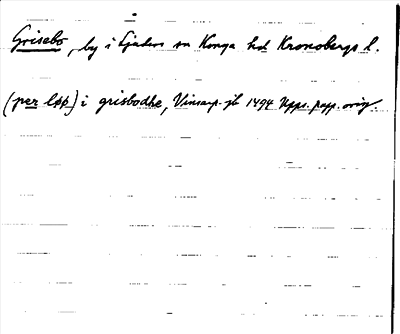 Grisebo, by i Ljuders sn Konga hd Kronobergs l.
(per løp) i grisbodhe, Vinsarp. jb 1494 Upps. papp. orig